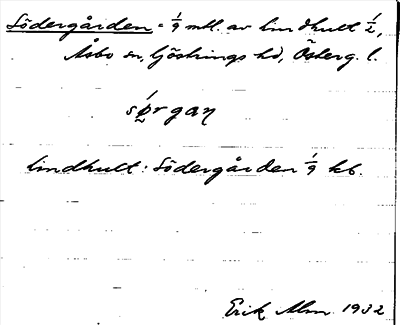 Södergården = 1/9 mtl. av Lindhult 1/2,
Åsbo sn, Göstrings hd, Österg. l.
sǿ̰rgan
Lindhult: Södergården 1/9 kb.
Erik Alm 1932